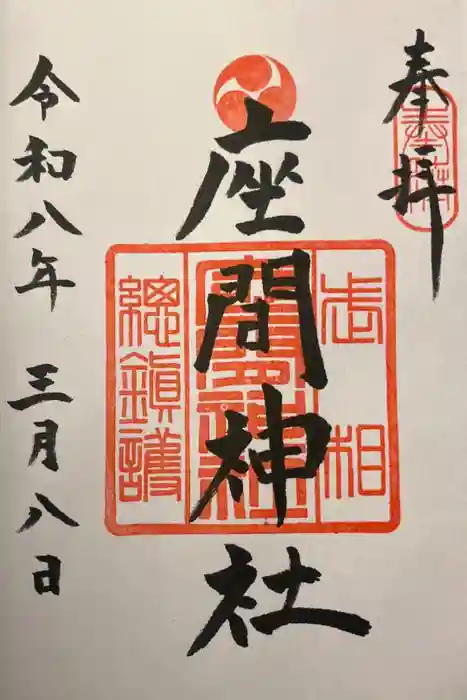 奉拝
座間神社
相武
座間神社
總鎮護
令和八年 三月八日